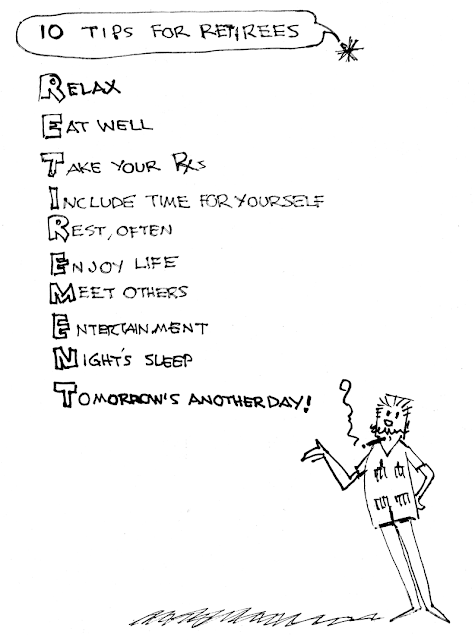 10 TIPS FOR RETIREES
RELAX
EAT WELL
TAKE YOUR RXS
INCLUDE TIME FOR YOURSELF
REST, OFTEN
ENJOY LIFE
MEET OTHERS
ENTERTAINMENT
NIGHT'S SLEEP
TOMORROW'S ANOTHER DAY!